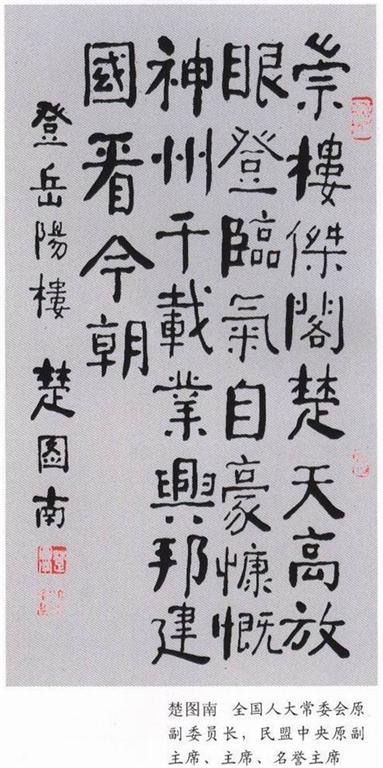 崇樓傑閣楚天高放
眼登臨氣自豪慷慨
神州千載業興邦建
國看今朝
登岳陽樓 楚圖南
楚图南 全国人大常委会原
副委员长，民盟中央原副
主席、主席、名誉主席